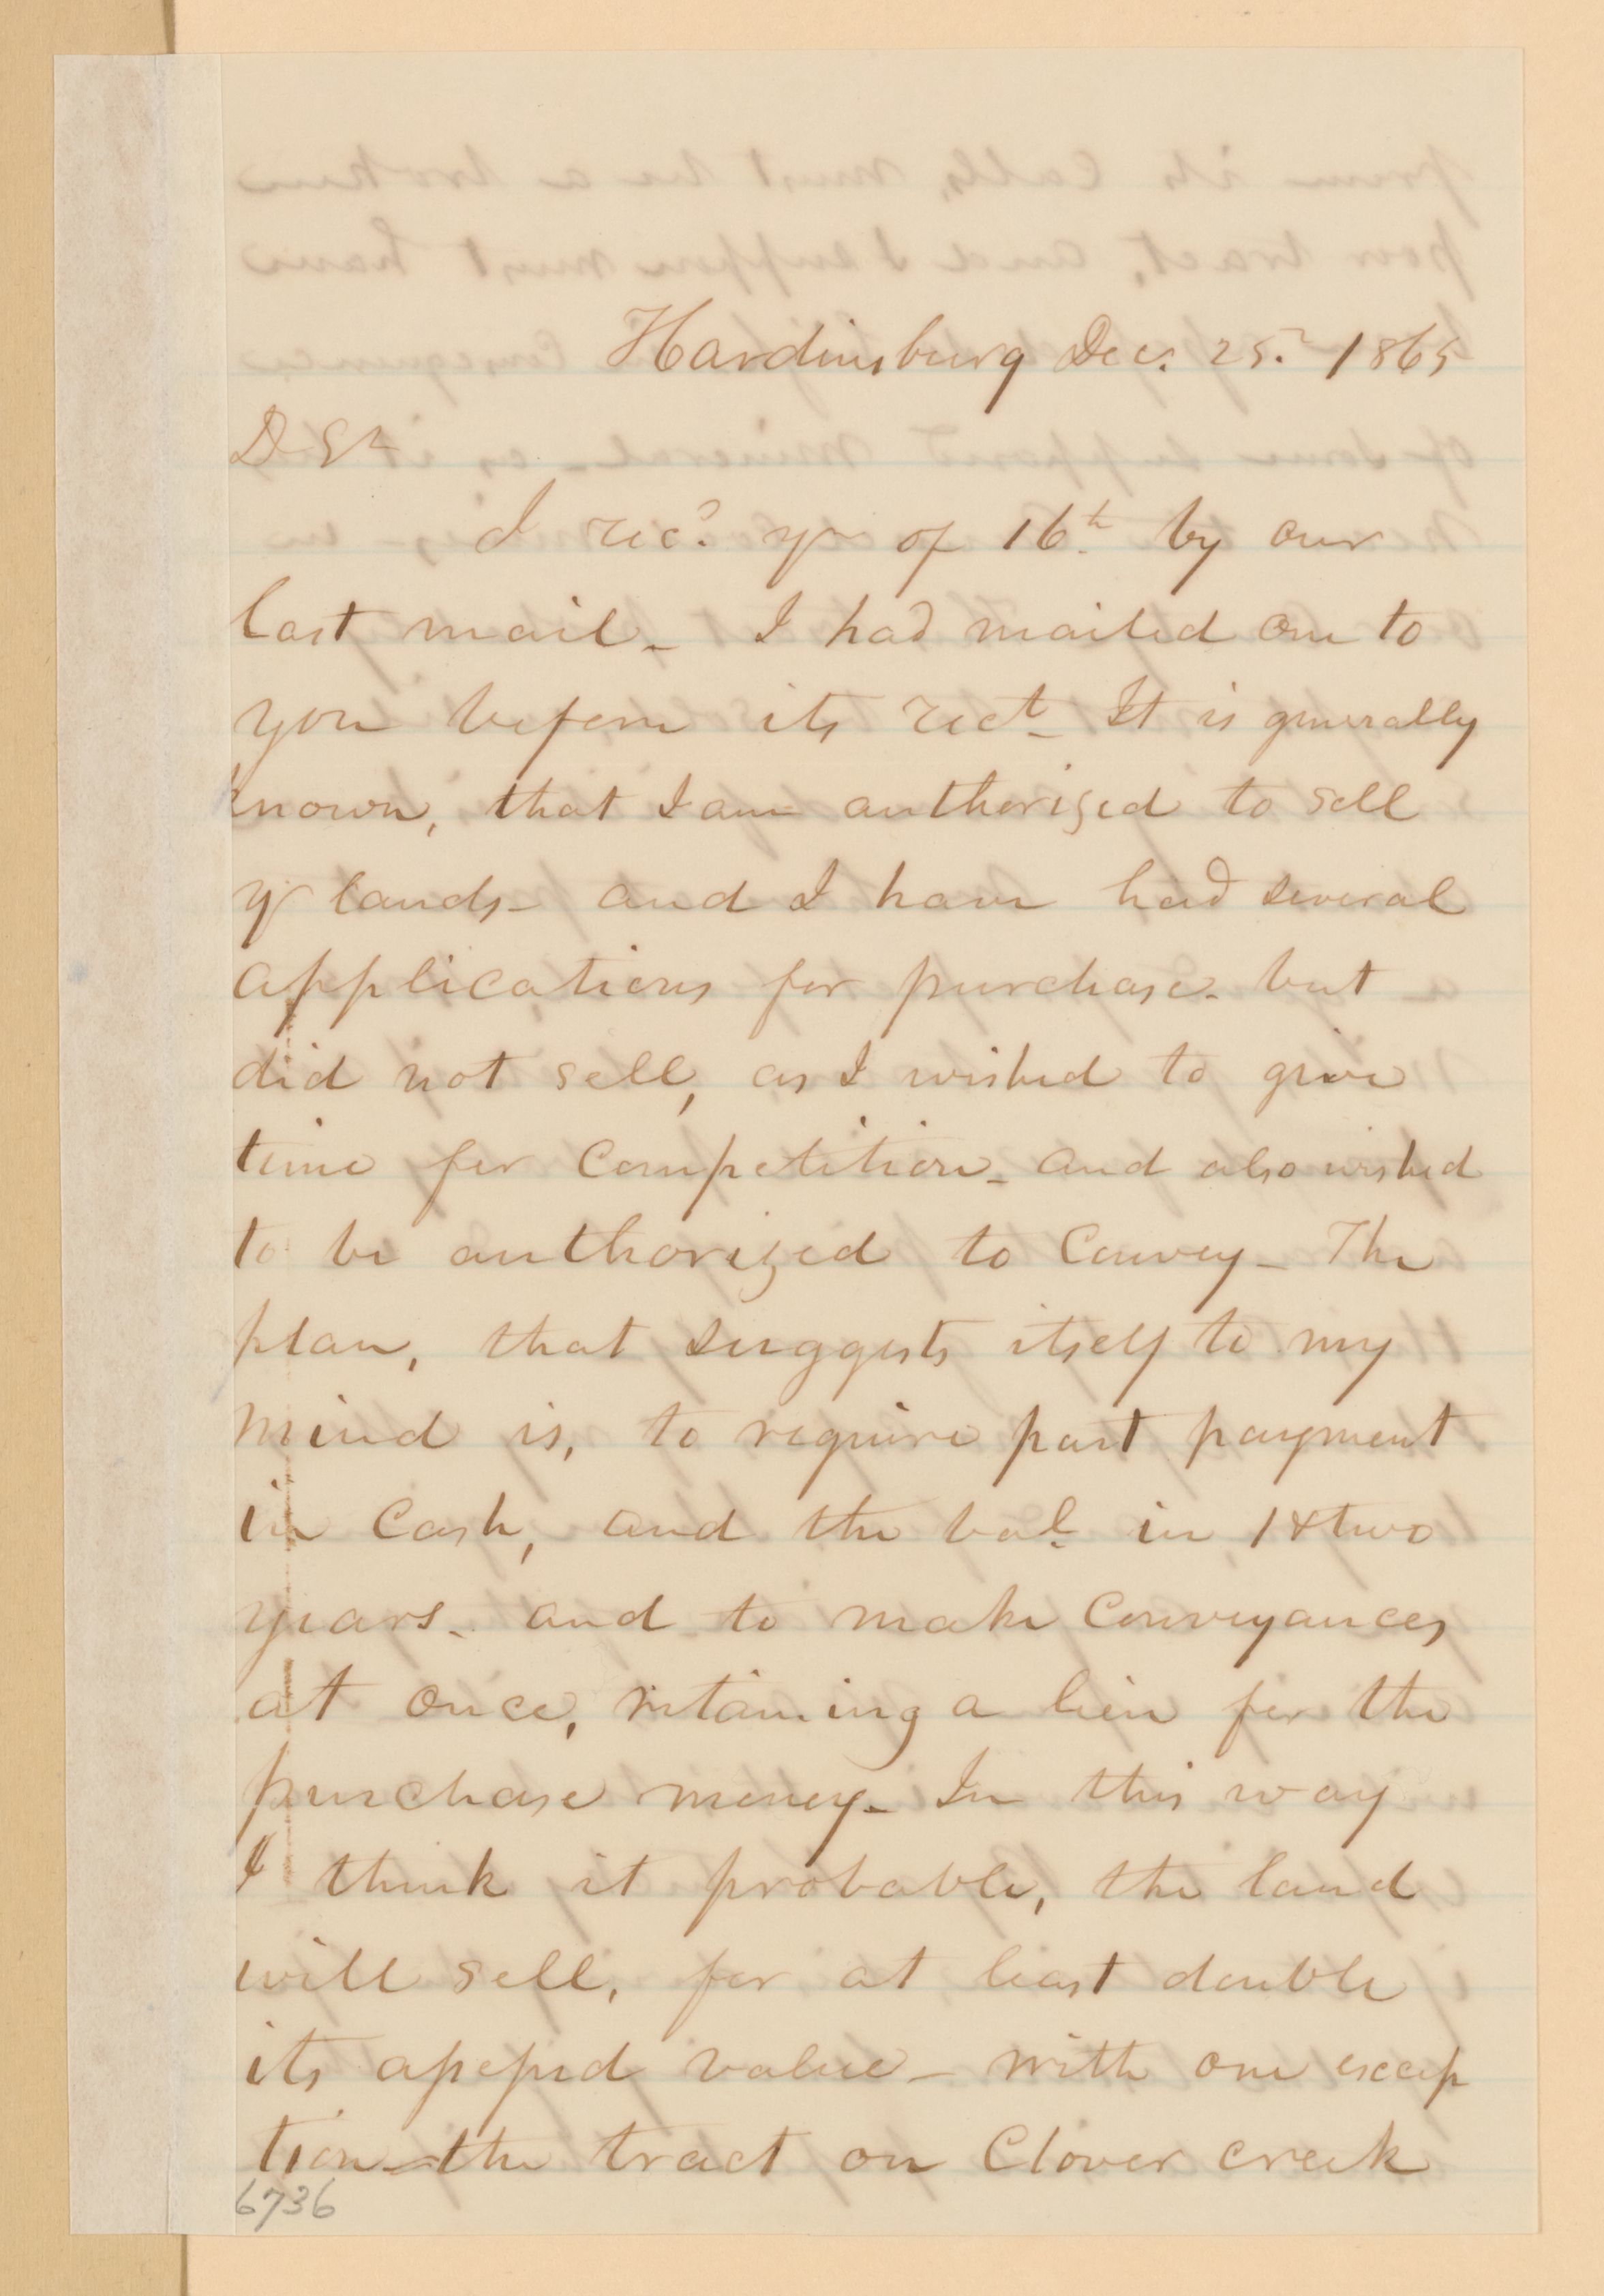 Hardinsburg Dec. 25. 1865
D Sr
I recd. yr of 16th by our
last mail_ I had mailed one to
you before its rect_ It is generally
known, that I am authorized to sell
yr lands_ and I have had several
applications for purchase_ but
did not sell, as I wished to give
time for competition_ and also wished
to be authorized to convey_ The
plan, that suggests itself to my
mind is, to require part payment
in Cash, and the bal. in 1 & two
years_ and to make conveyances
at once, retaining a lien for the
purchase money_ In this way
I think it probable, the land
will sell, for at least double
its assessed value_ with one excep
tion_ the tract on Clover creek
6736